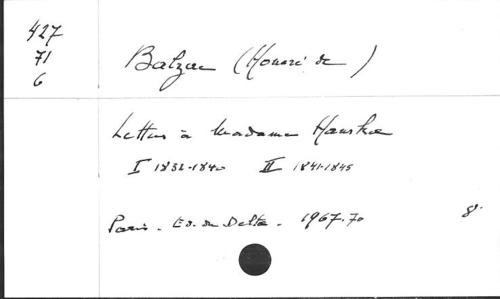 427
71
6
Balzac (Honoré de)
Lettres à Madame Hanska
I 1832-1840 II 1841-1845
Paris. Ed. du Delta. 1967-70 8°